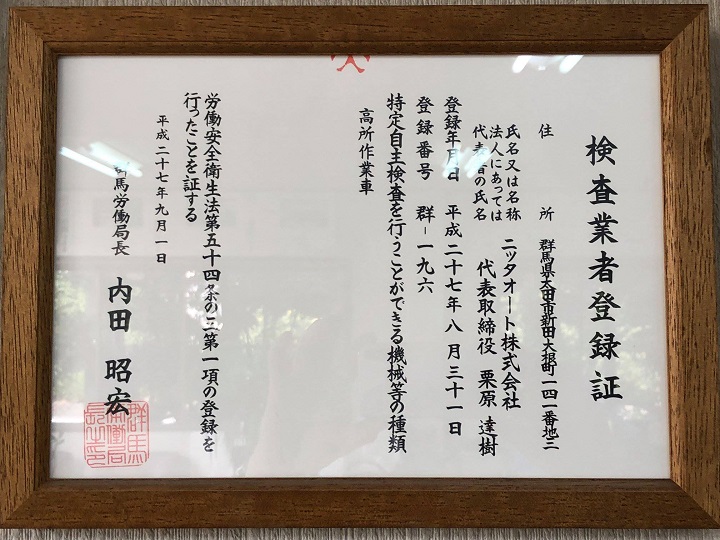 検査業者登録証
住所 群馬県太田市新田大根町一四一番地三
氏名又は名称 ニッタオート株式会社
法人にあっては
代表者の氏名 代表取締役 栗原 達樹
登録年月日 平成二十七年八月三十一日
登録番号 群-一九六
特定自主検査を行うことができる機械等の種類
高所作業車
労働安全衛生法第五十四条の三第一項の登録を
行ったことを証する
平成二十七年九月一日
群馬労働局長 内田 昭宏
群馬
労働局
長之印